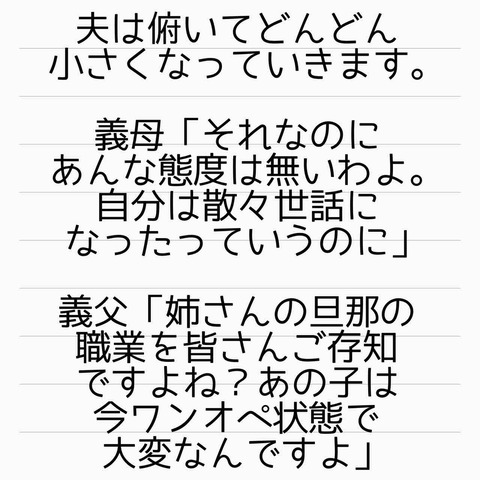 夫は俯いてどんどん
小さくなっていきます。
義母「それなのに
あんな態度は無いわよ。
自分は散々世話に
なったっていうのに」
義父「姉さんの旦那の
職業を皆さんご存知
ですよね？あの子は
今ワンオペ状態で
大変なんですよ」